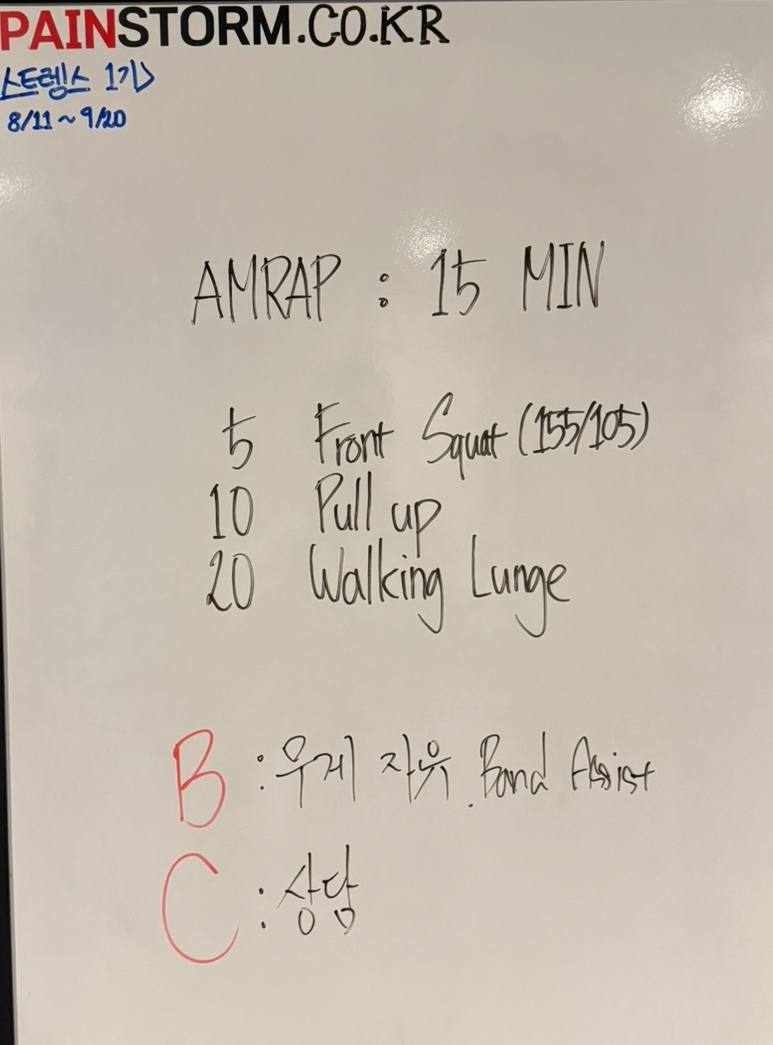 PAINSTORM.CO.KR
스트렝스 1기
8/11 ~ 9/20
AMRAP : 15 MIN
5 Front Squat (155/105)
10 Pull up
20 Walking Lunge
B : 무게 자유, Band Assist
C : 상담